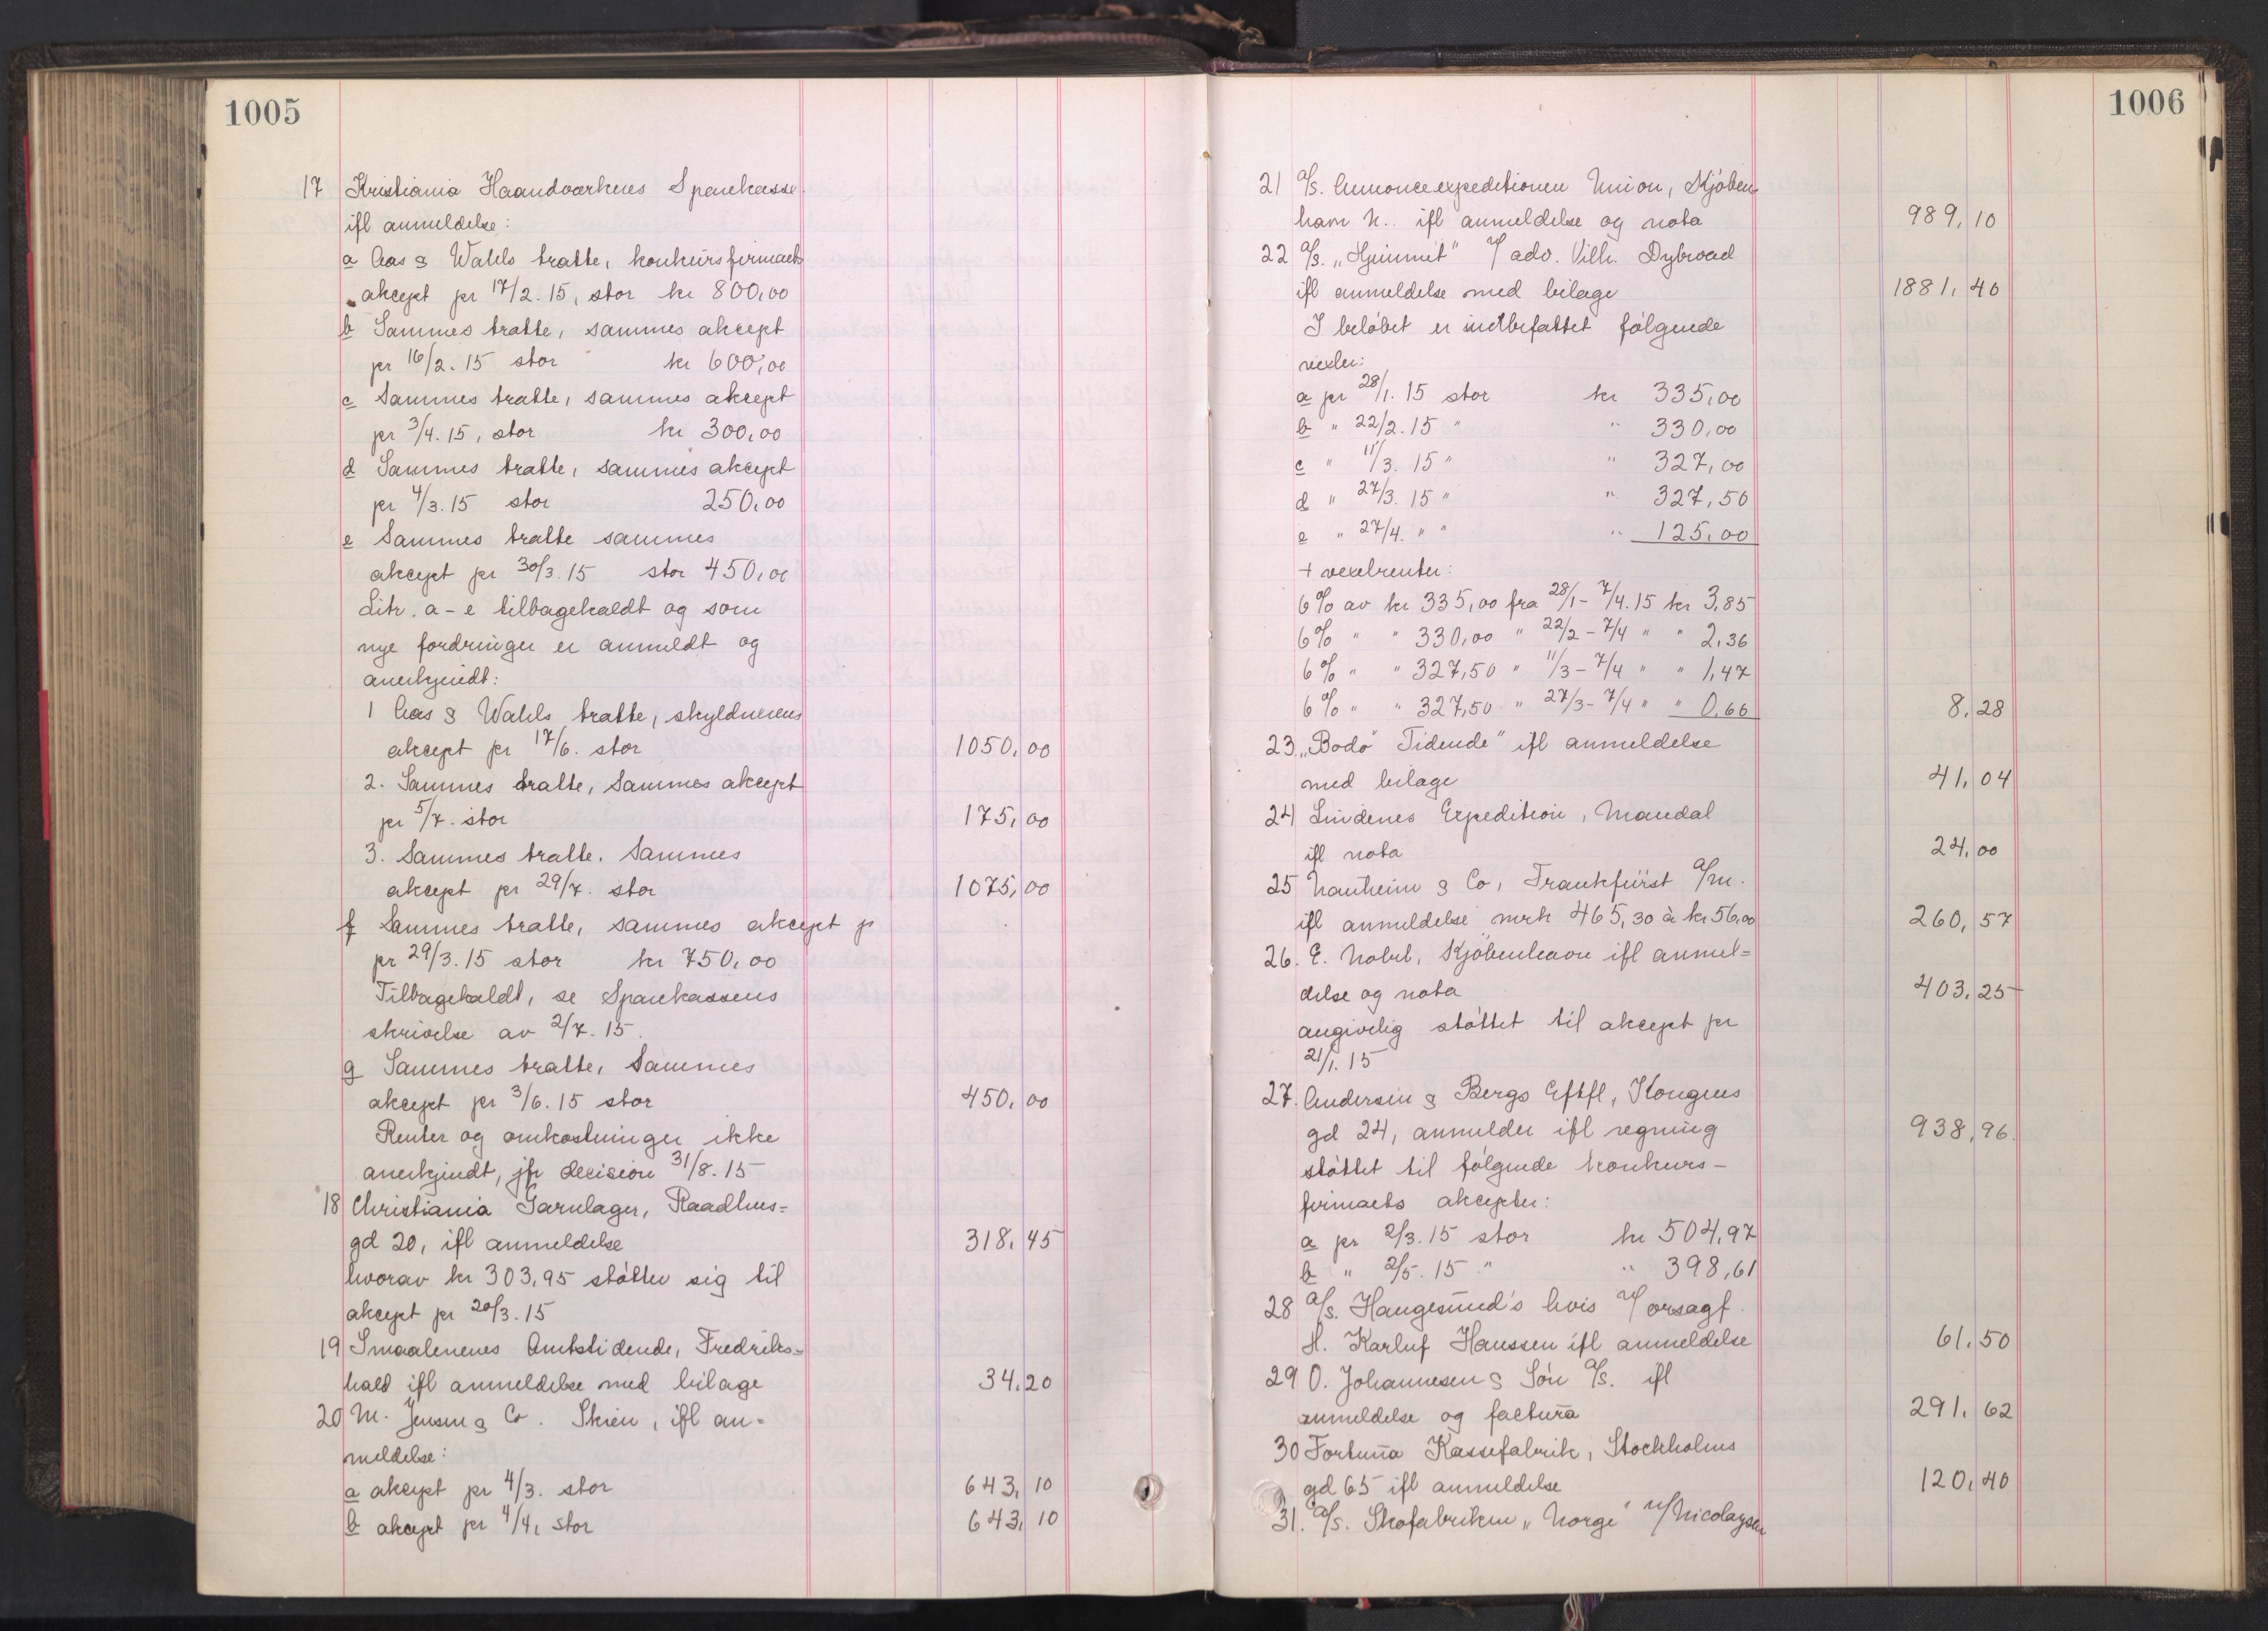 1005
17 Kristiania Haandværkeres Sparekasse
ifl anmeldelse:
a Aas & Wahls tratte, konkursfirmaets
akcept pr 17/2. 15, stor kr 800,00
b Sammes tratte, sammes akcept
pr 16/2. 15 stor kr 600,00
c Sammes tratte, sammes akcept
pr 3/4. 15, stor kr 300,00
d Sammes tratte, sammes akcept
pr 4/3. 15 stor 250,00
e Sammes tratte sammes
akcept pr 30/3. 15 stor 450,00
Litr. a-e tilbagekaldt og som
nye fordringer er anmeldt og
anerkjendt:
1 Aas & Wahls tratte, skyldnerens
akcept pr 17/6. stor 1050,00
2. Sammes tratte, Sammes akcept
pr 5/7. stor 175,00
3. Sammes tratte. Sammes
akcept pr 29/7. stor 1075,00
f Sammes tratte, sammes akcept p
pr 29/3. 15 stor kr 750,00
Tilbagekaldt, se Sparekassens
skrivelse av 2/7. 15.
g Sammes tratte, Sammes
akcept pr 3/6. 15 stor 450,00
Renter og omkostninger ikke
anerkjendt, jfr decision 31/8. 15
18 Christiania Garnlager, Raadhus=
gd 20, ifl anmeldelse 318,45
hvorav kr 303,95 støtter sig til
akcept pr 20/3. 15
19 Smaalenenes Amtstidende, Fredriks=
hald ifl anmeldelse med bilage 34,20
20 M. Jensen & Co. Skien, ifl an=
meldelse:
a akcept pr 4/3. stor 643,10
b akcept pr 4/4, stor 643,10
1006
21 A/S. Annonceexpeditionen Union, Kjøben
havn K.. ifl anmeldelse og nota 989,10
22 A/S. „Hjemmet" v/ adv. Vilh. Dybwad
ifl anmeldelse med bilage 1881,40
I beløbet er indbefattet følgende
vexler:
a pr 28/1. 15 stor kr 335,00
b " 22/2. 15 " " 330,00
c " 11/3. 15 " " 327,00
d " 27/3. 15 " " 327,50
e " 27/4. " " " 125,00
+ vexelrenter:
6% av kr 335,00 fra 28/1 - 7/4. 15 kr 3,85
6% " " 330,00 " 22/2 - 7/4 " " 2,36
6% " " 327,50 " 11/3 - 7/4 " " 1,47
6% " " 327,50 " 27/3 - 7/4 " " 0,60 8,28
23 „Bodø Tidende" ifl anmeldelse
med bilage 41,04
24 Lindenes Expedition, Mandal
ifl nota 24,00
25 Nauheim & Co, Frankfurst a/M.
ifl anmeldelse mrk 465,30 à kr 56,00 260,57
26. E. Nobel, Kjøbenhavn ifl anmel=
delse og nota 403,25
angivelig støttet til akcept pr
21/1. 15
27. Andersen & Bergs Eftfl, Kongens
gd 24, anmelder ifl regning 938,96.
støttet til følgende konkurs-
firmaets akcepter:
a pr 2/3. 15 stor kr 504,97
b " 2/5. 15 " " 398,61
28 A/S. Haugesund's Avis v/ orsagf.
H. Karluf Hanssen ifl anmeldelse 61,50
29 O. Johannesen & Søn A/S. ifl
anmeldelse og factura 291,62
30 Fortuna Kassefabrik, Stockholms
gd 65 ifl anmeldelse 120,40
31. A/S. Skofabriken „Norge" v/ Nicolaysen